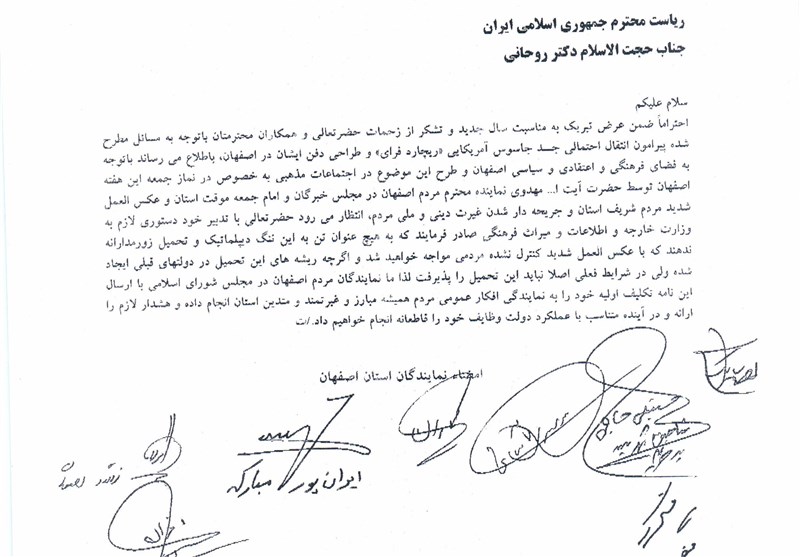 ریاست محترم جمهوری اسلامی ایران
جناب حجت الاسلام دکتر روحانی
سلام علیکم
احتراماً ضمن عرض تبریک به مناسبت سال جدید و تشکر از زحمات حضرتعالی و همکاران محترمتان باتوجه به مسائل مطرح
شده پیرامون انتقال احتمالی جسد جاسوس آمریکایی «ریچارد فرای» و طراحی دفن ایشان در اصفهان، باطلاع می رساند باتوجه
به فضای فرهنگی و اعتقادی و سیاسی اصفهان و طرح این موضوع در اجتماعات مذهبی به خصوص در نماز جمعه این هفته
اصفهان توسط حضرت آیت ا... مهدوی نماینده محترم مردم اصفهان در مجلس خبرگان و امام جمعه موقت استان و عکس العمل
شدید مردم شریف استان و جریحه دار شدن غیرت دینی و ملی مردم، انتظار می رود حضرتعالی با تدبیر خود دستوری لازم به
وزارت خارجه و اطلاعات و میراث فرهنگی صادر فرمایند که به هیچ عنوان تن به این ننگ دیپلماتیک و تحمیل زورمدارانه
ندهند که با عکس العمل شدید کنترل نشده مردمی مواجه خواهید شد و اگرچه ریشه های این تحمیل در دولتهای قبلی ایجاد
شده ولی در شرایط فعلی اصلا نباید این تحمیل را پذیرفت لذا ما نمایندگان مردم اصفهان در مجلس شورای اسلامی با ارسال
این نامه تکلیف اولیه خود را به نمایندگی افکار عمومی مردم همیشه مبارز و غیرتمند و متدین استان انجام داده و هشدار لازم را
ارائه و در آینده متناسب با عملکرد دولت وظایف خود را قاطعانه انجام خواهیم داد./ت
امضاء نمایندگان استان اصفهان
ایران پور مبارکه